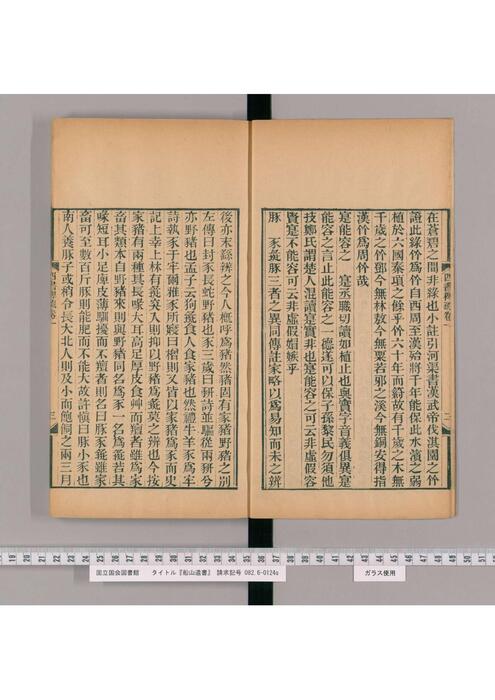 四書稗疏卷一
二
在蒼碧之間非綠也小註引河渠書漢武帝伐淇園之竹
證此綠竹爲竹自西周至漢殆將千年能保此水濱之弱
植於六國秦項之餘乎竹六十年而籜故有千歲之木無
千歲之竹鄧今無林敖今無粟若邪之溪今無銅安得指
漢竹爲周竹哉
寔能容之　寔丞職切讀如植止也與實字音義俱異寔
能容之言止此能容之一德遂可以保子孫黎民勿須他
技鄭氏謂楚人混讀寔實非也寔能容之可云非虛假容
賢寔不能容可云非虛假媢嫉乎
豚　豕彘豚三者之異同傳註家略以爲易知而未之辨
後亦末繇辨之今人槪呼爲豬然豬固有家豬野豬之別
左傳曰封豕長蛇野豬也豕三歲曰豜詩並驅從兩豜兮
亦野豬也孟子云狗彘食人食家豬也然禮牛羊豕爲牢
詩執豕于牢爾雅豕所寢曰橧則又皆以家豬爲豕而史
記上幸上林有彘突入則抑以野豬爲彘矣之辨也今按
家豬有兩種其長喙大耳高足厚皮食艸而者雖爲家
畜其類本自野豬來則與野豬同名爲豕一名爲彘若其
喙短耳小足庳皮薄驅擾而不者則名曰豚豕彘雖家
畜可至數百斤豚則能肥而不能大故許愼曰豚小豕也
南人養豚子或稍令長大北人則及小而飽飼之兩三月
三
国立国会図書館　タイトル『船山遺書』　請求記号 082.6-O124o
ガラス使用
19 20 21 22 23 24 25 26 27 28 29 30 31 32 33 34 35 36 37 38 39 40 41 42 43 44 45 46 47 48 49 50 51 52